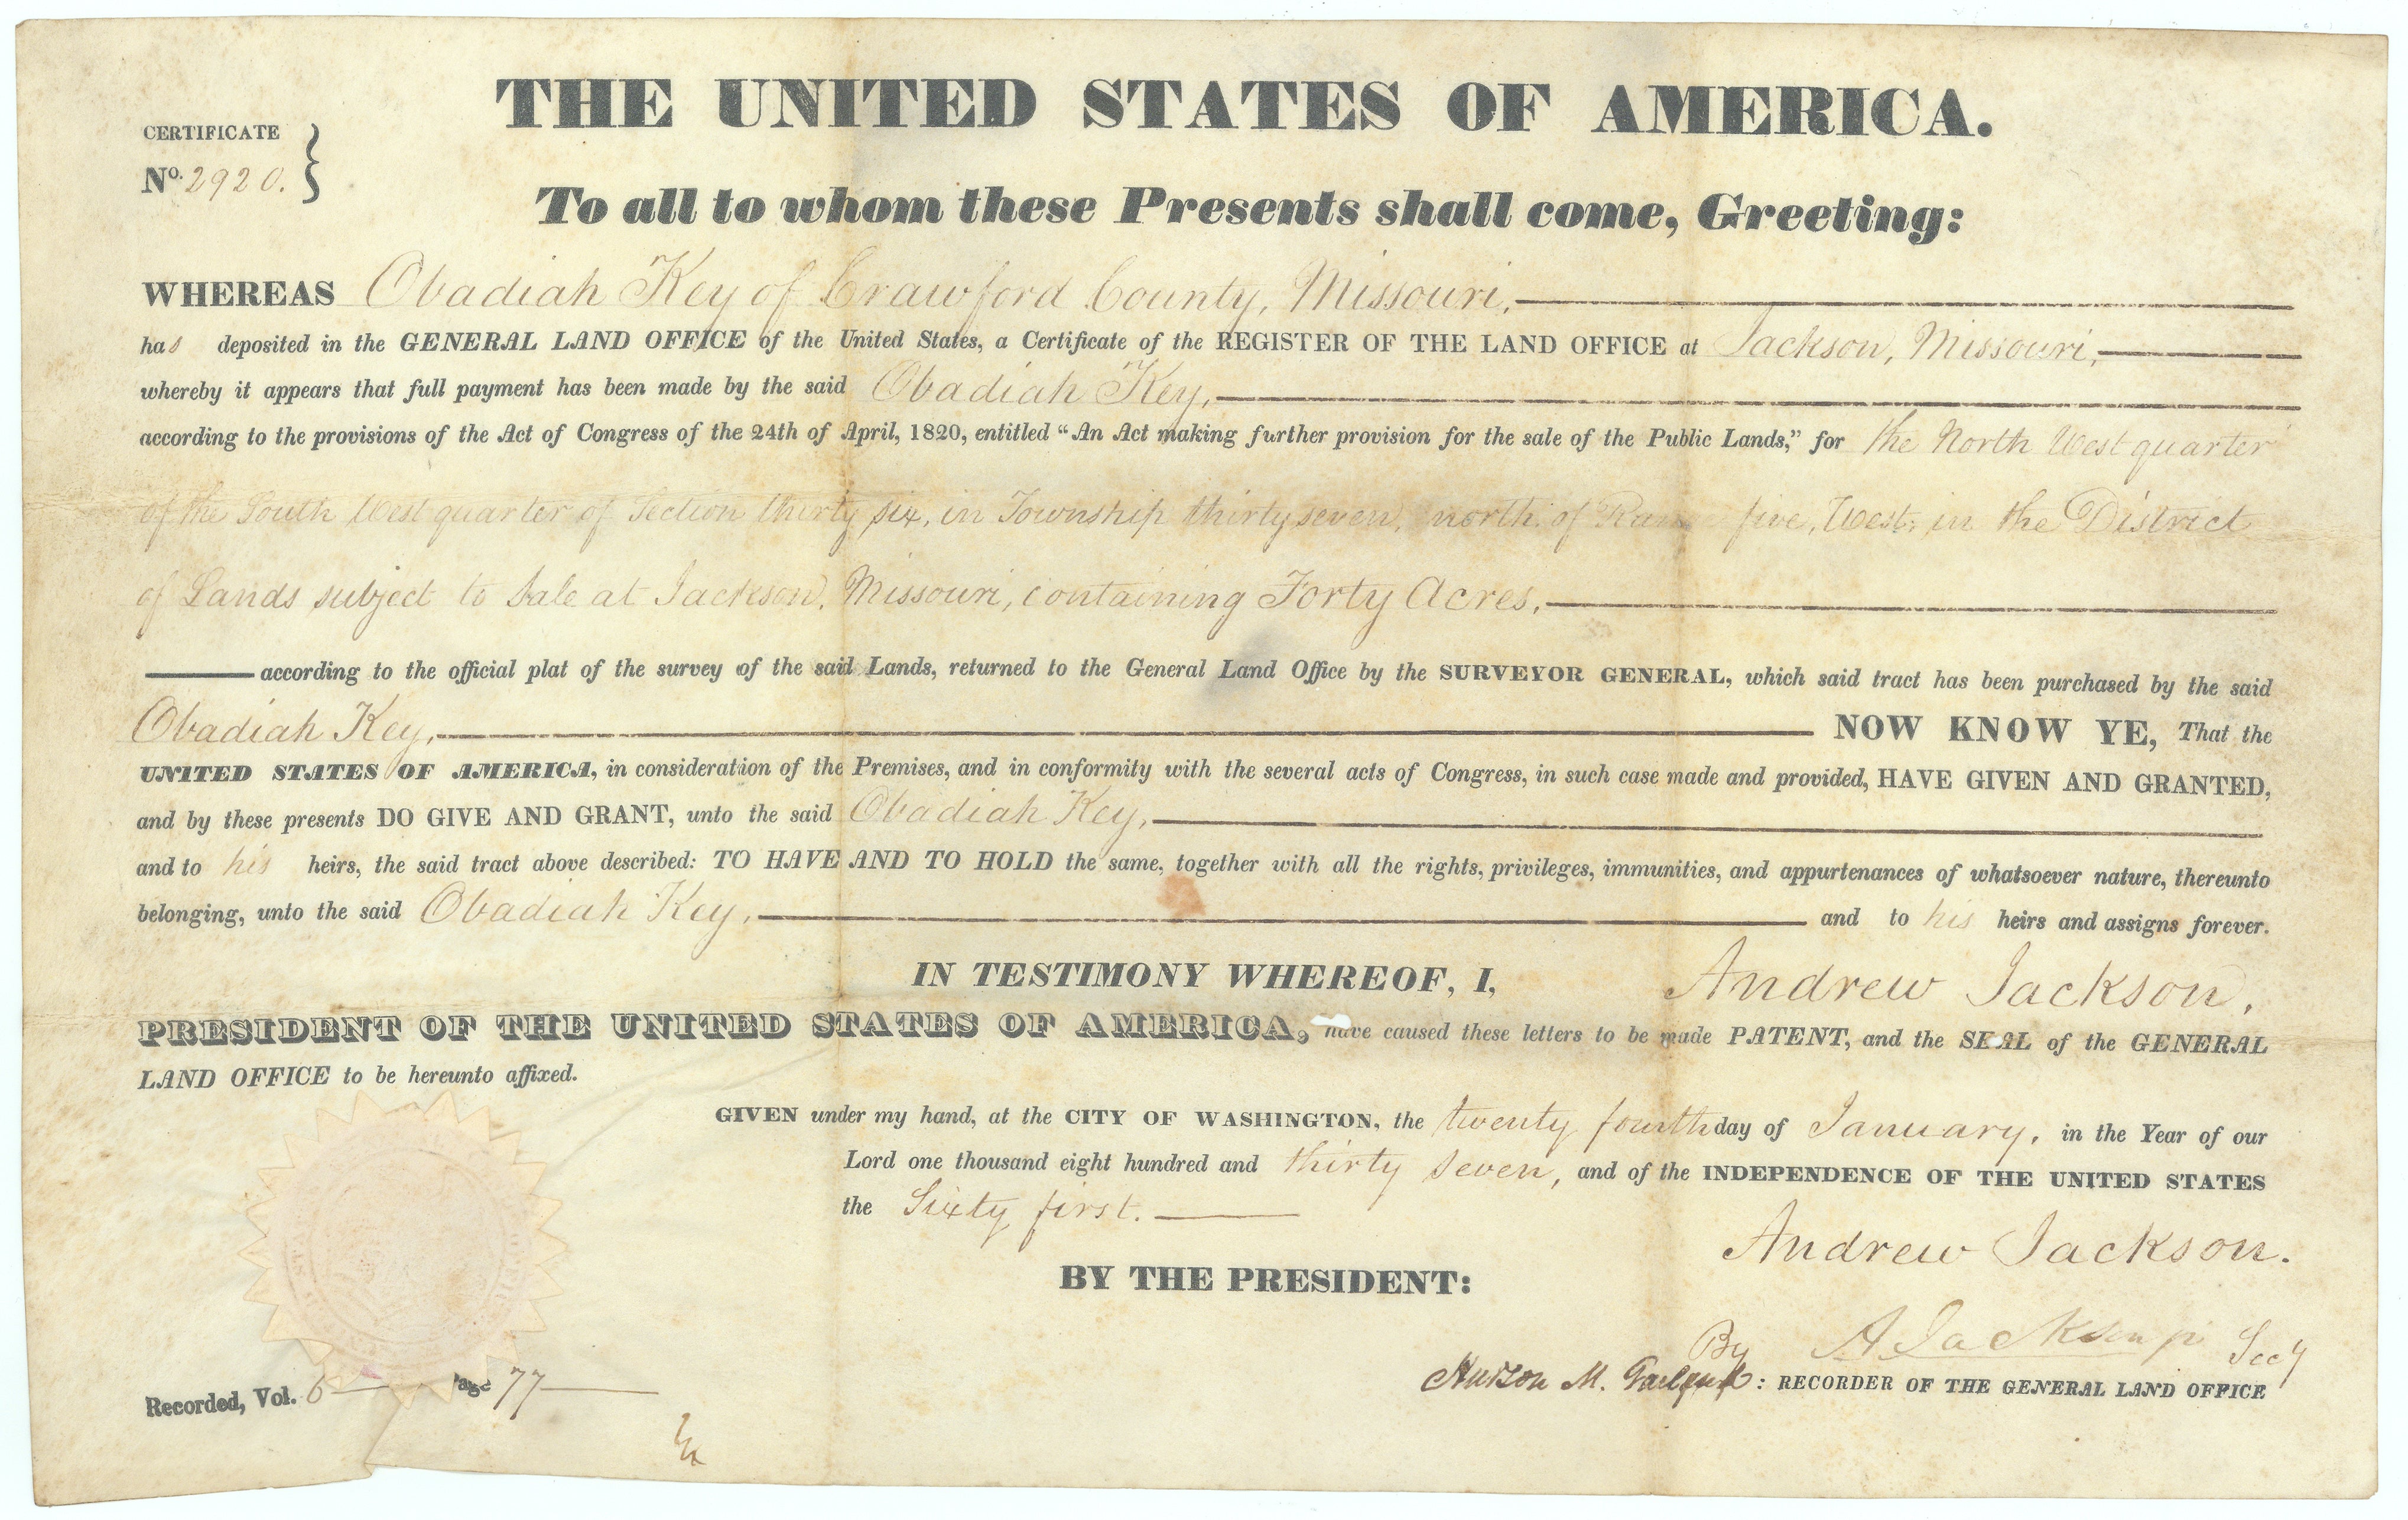 THE UNITED STATES OF AMERICA.
CERTIFICATE
No. 2920.
To all to whom these Presents shall come, Greeting:
WHEREAS Obadiah Key of Crawford County, Missouri,
has deposited in the GENERAL LAND OFFICE of the United States, a Certificate of the REGISTER OF THE LAND OFFICE at Jackson, Missouri,
whereby it appears that full payment has been made by the said Obadiah Key,
according to the provisions of the Act of Congress of the 24th of April, 1820, entitled “An Act making further provision for the sale of the Public Lands,” for the North West quarter
of the South West quarter of Section thirty six, in Township thirty seven, north of Range five, West, in the District
of Lands subject to Sale at Jackson, Missouri, containing Forty Acres,
according to the official plat of the survey of the said Lands, returned to the General Land Office by the SURVEYOR GENERAL, which said tract has been purchased by the said
Obadiah Key, NOW KNOW YE, That the
UNITED STATES OF AMERICA, in consideration of the Premises, and in conformity with the several acts of Congress, in such case made and provided, HAVE GIVEN AND GRANTED,
and by these presents DO GIVE AND GRANT, unto the said Obadiah Key,
and to his heirs, the said tract above described: TO HAVE AND TO HOLD the same, together with all the rights, privileges, immunities, and appurtenances of whatsoever nature, thereunto
belonging, unto the said Obadiah Key, and to his heirs and assigns forever.
IN TESTIMONY WHEREOF, I, Andrew Jackson,
PRESIDENT OF THE UNITED STATES OF AMERICA, have caused these letters to be made PATENT, and the SEAL of the GENERAL
LAND OFFICE to be hereunto affixed.
GIVEN under my hand, at the CITY OF WASHINGTON, the twenty fourth day of January, in the Year of our
Lord one thousand eight hundred and thirty seven, and of the INDEPENDENCE OF THE UNITED STATES
the Sixty first.
Andrew Jackson.
BY THE PRESIDENT:
By A Jackson jr Secy
Hudson M. Garland : RECORDER OF THE GENERAL LAND OFFICE
Recorded, Vol. 6 Page 77